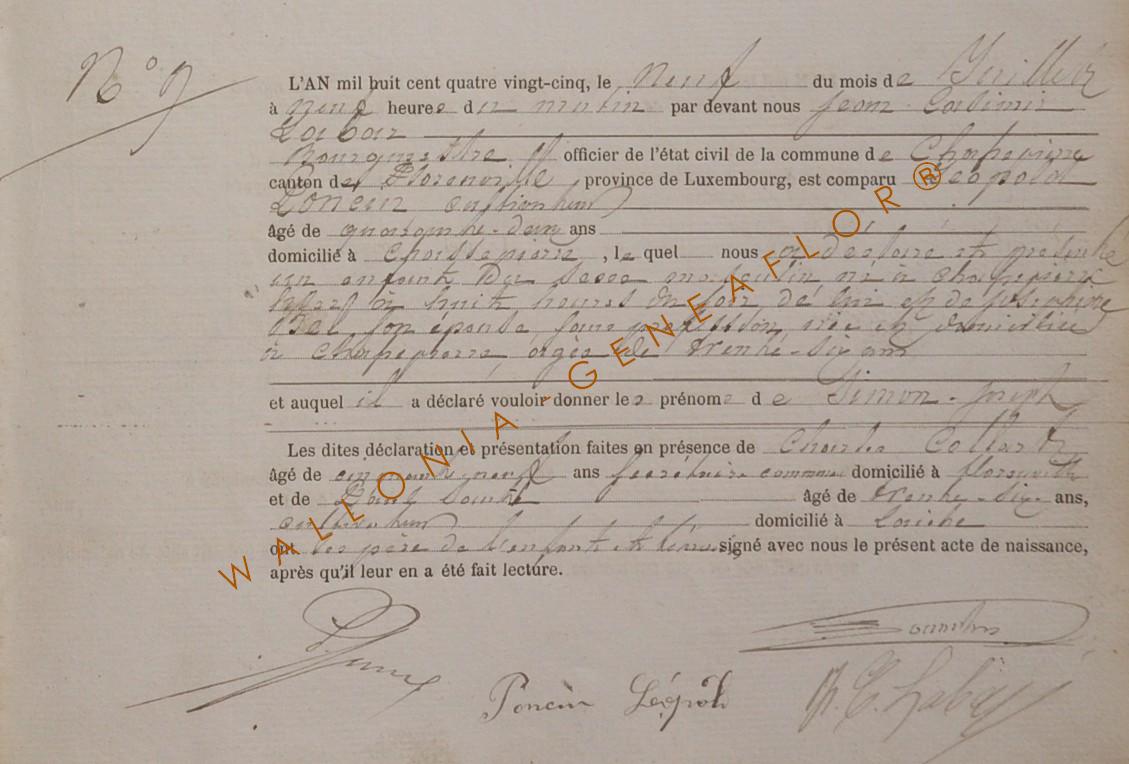 N° 9
L'AN mil huit cent quatre vingt-cinq, le neuf du mois de Juillet
à neuf heures du matin par devant nous Jean Casimir
Bourgmestre officier de l'état civil de la commune de Chassepierre
canton de Florenville, province de Luxembourg, est comparu Léopold
Poncin cultivateur
âgé de quarante-deux ans
domicilié à Chassepierre, lequel nous a déclaré et présenté
un enfant du sexe masculin né à Chassepierre
à huit heures du soir de lui et de Joséphine
son épouse sans profession, née et domiciliée
à Chassepierre âgée de trente-six ans
et auquel il a déclaré vouloir donner les prénoms de Simon-Joseph
Les dites déclaration et présentation faites en présence de Charles Collard
âgé de cinquante-neuf ans Secrétaire communal domicilié à Florenville
et de âgé de trente-six ans,
cultivateur domicilié à Laiche
ont les père de l'enfant et témoins signé avec nous le présent acte de naissance,
après qu'il leur en a été fait lecture.
Poncin Léopold
WALLONIA-GENEAFLOR®